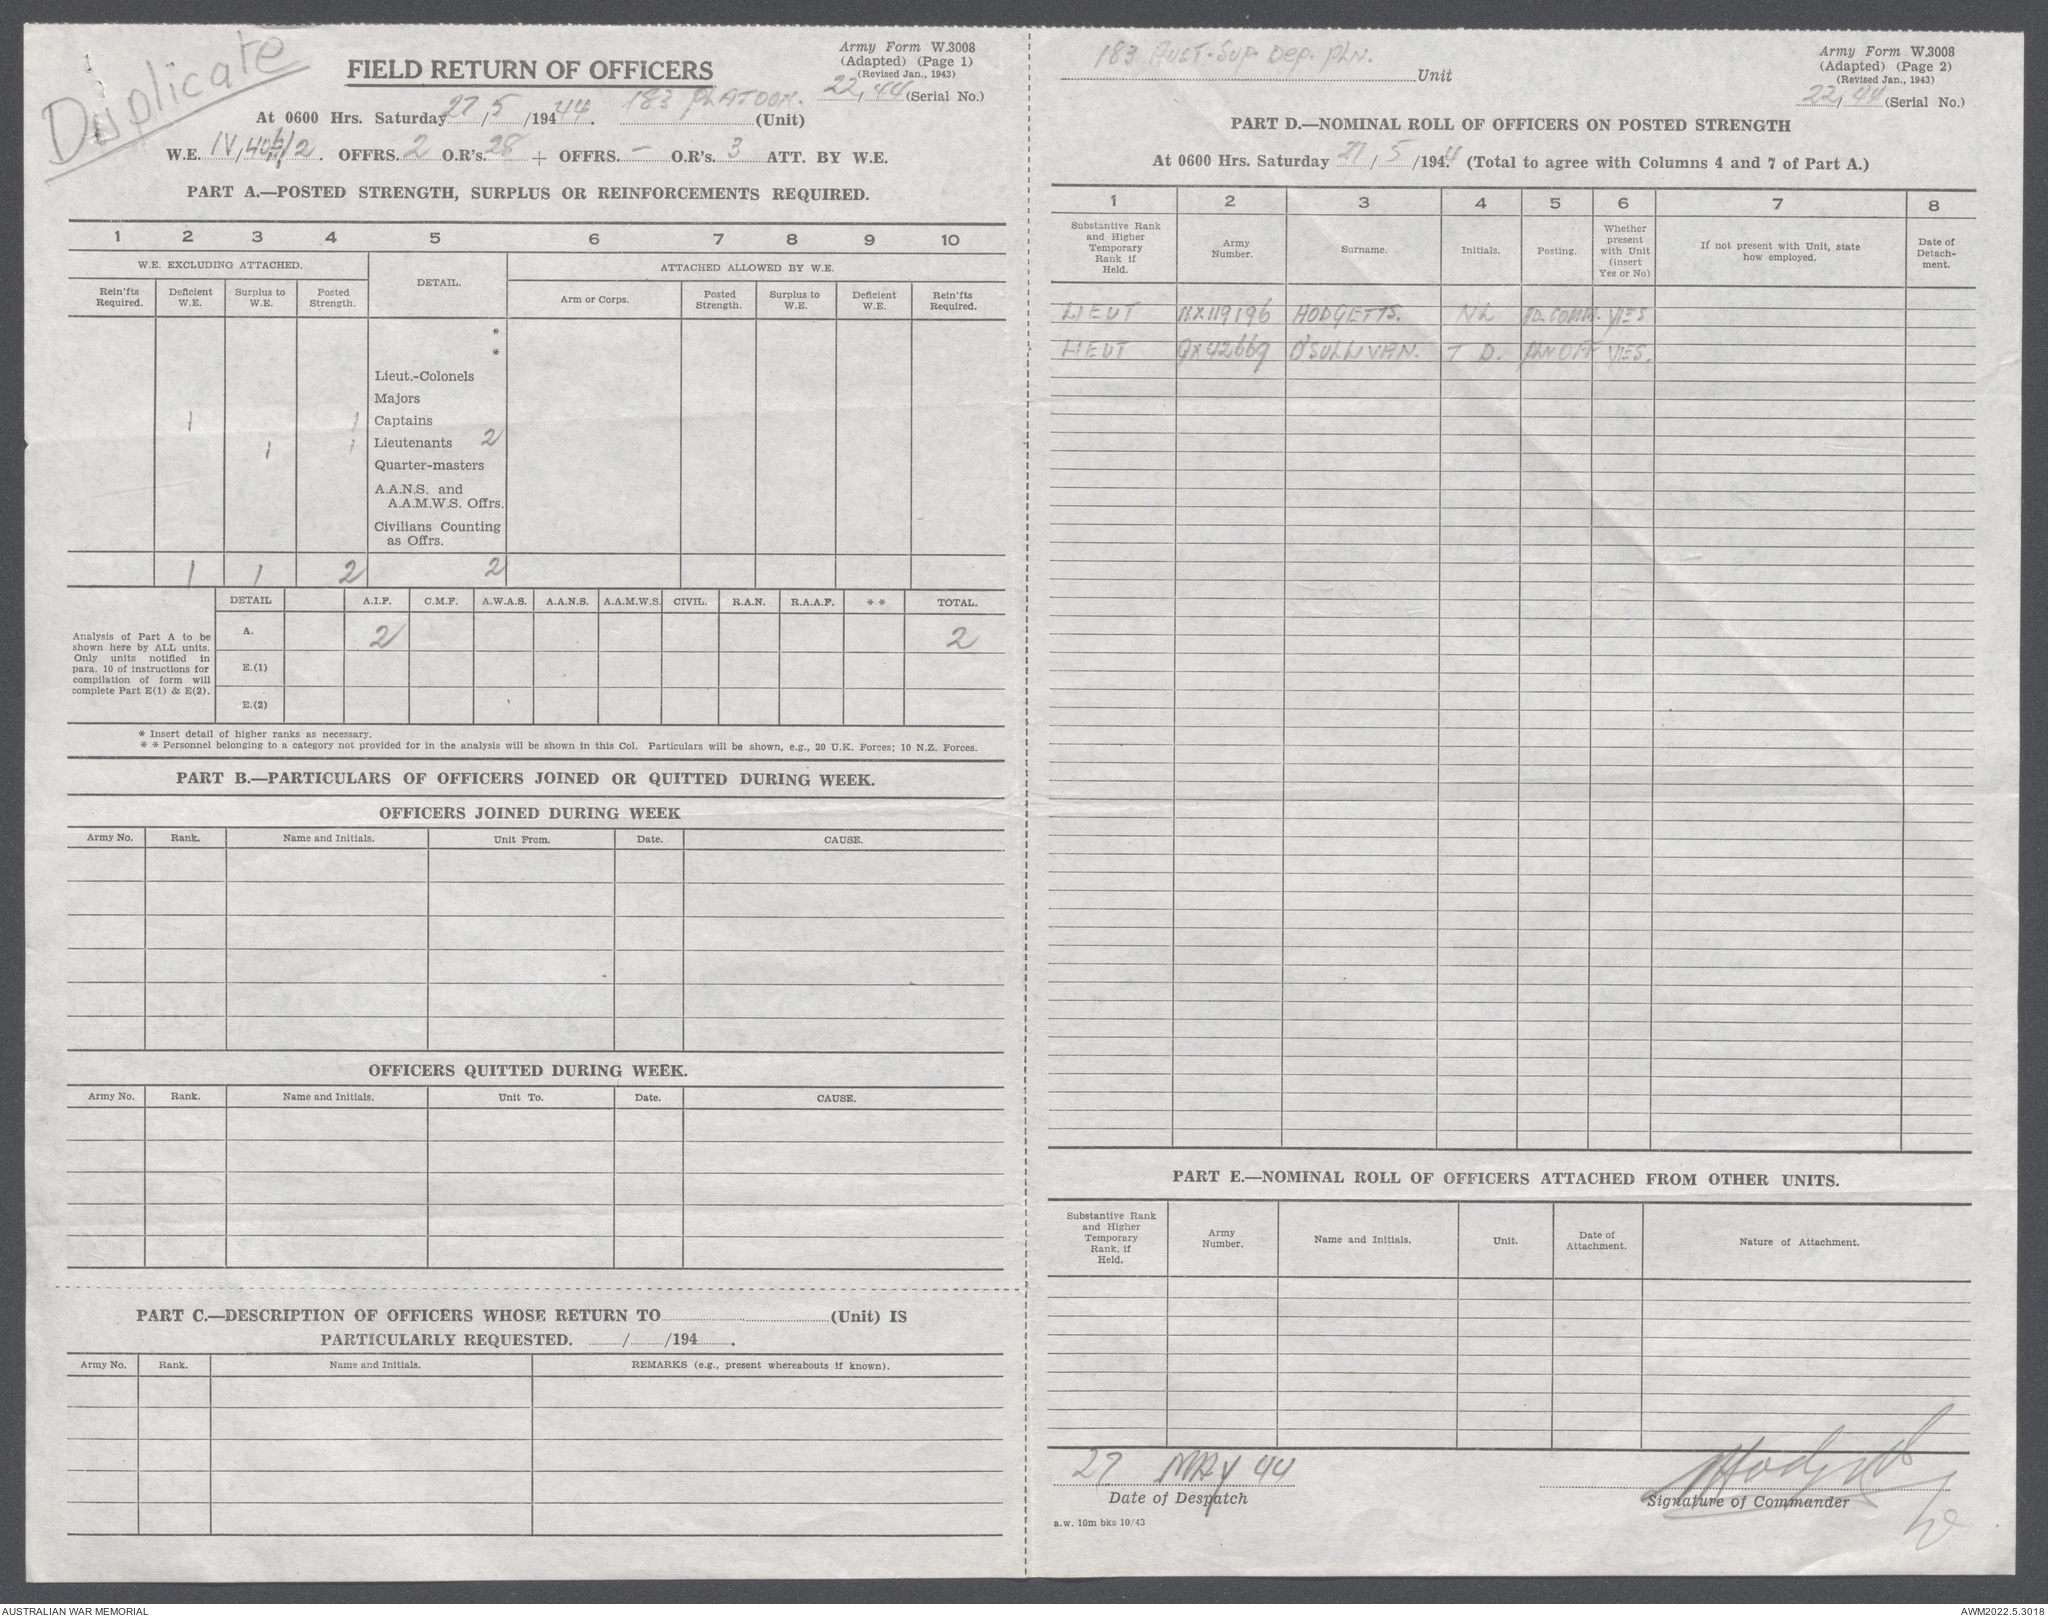 Duplicate
FIELD RETURN OF OFFICERS
Army Form W.3008
(Adapted) (Page 1)
(Revised Jan., 1943)
22/44 (Serial No.)
At 0600 Hrs. Saturday 27/5/1944. 183 PLATOON. (Unit)
W.E. IV/ /2. OFFRS. 2 O.R's. 28 + OFFRS. — O.R's. 3 ATT. BY W.E.
PART A.—POSTED STRENGTH, SURPLUS OR REINFORCEMENTS REQUIRED.
1 2 3 4 5 6 7 8 9 10
W.E. EXCLUDING ATTACHED. DETAIL. ATTACHED ALLOWED BY W.E.
Rein'fts Required. Deficient W.E. Surplus to W.E. Posted Strength. Arm or Corps. Posted Strength. Surplus to W.E. Deficient W.E. Rein'fts Required.
*
*
Lieut.-Colonels
Majors
1 1 Captains
1 1 Lieutenants 2
Quarter-masters
A.A.N.S. and
A.A.M.W.S. Offrs.
Civilians Counting
as Offrs.
1 1 2 2
DETAIL A.I.F. C.M.F. A.W.A.S. A.A.N.S. A.A.M.W.S. CIVIL. R.A.N. R.A.A.F. * * TOTAL.
Analysis of Part A to be
shown here by ALL units.
Only units notified in
para. 10 of instructions for
compilation of form will
complete Part E(1) & E(2).
A. 2 2
E.(1)
E.(2)
* Insert detail of higher ranks as necessary.
* * Personnel belonging to a category not provided for in the analysis will be shown in this Col. Particulars will be shown, e.g., 20 U.K. Forces; 10 N.Z. Forces.
PART B.—PARTICULARS OF OFFICERS JOINED OR QUITTED DURING WEEK.
OFFICERS JOINED DURING WEEK
Army No. Rank. Name and Initials. Unit From. Date. CAUSE.
OFFICERS QUITTED DURING WEEK.
Army No. Rank. Name and Initials. Unit To. Date. CAUSE.
PART C.—DESCRIPTION OF OFFICERS WHOSE RETURN TO (Unit) IS
PARTICULARLY REQUESTED. / /194 .
Army No. Rank. Name and Initials. REMARKS (e.g., present whereabouts if known).
183 AUST. SUP. DEP. PLN. Unit
Army Form W.3008
(Adapted) (Page 2)
(Revised Jan., 1943)
22/44 (Serial No.)
PART D.—NOMINAL ROLL OF OFFICERS ON POSTED STRENGTH
At 0600 Hrs. Saturday 27/5/1944. (Total to agree with Columns 4 and 7 of Part A.)
1 2 3 4 5 6 7 8
Substantive Rank and Higher Temporary Rank if Held. Army Number. Surname. Initials. Posting. Whether present with Unit (insert Yes or No) If not present with Unit, state how employed. Date of Detach-ment.
LIEUT NX119196 HODGETTS. NL COMM. YES
LIEUT QX42669 O'SULLIVAN. T D. PLN OFF YES.
PART E.—NOMINAL ROLL OF OFFICERS ATTACHED FROM OTHER UNITS.
Substantive Rank and Higher Temporary Rank, if Held. Army Number. Name and Initials. Unit. Date of Attachment. Nature of Attachment.
27 MAY 44
Date of Despatch
Hodgetts
Signature of Commander
a.w. 10m bks 10/43
AUSTRALIAN WAR MEMORIAL
AWM2022.5.3018